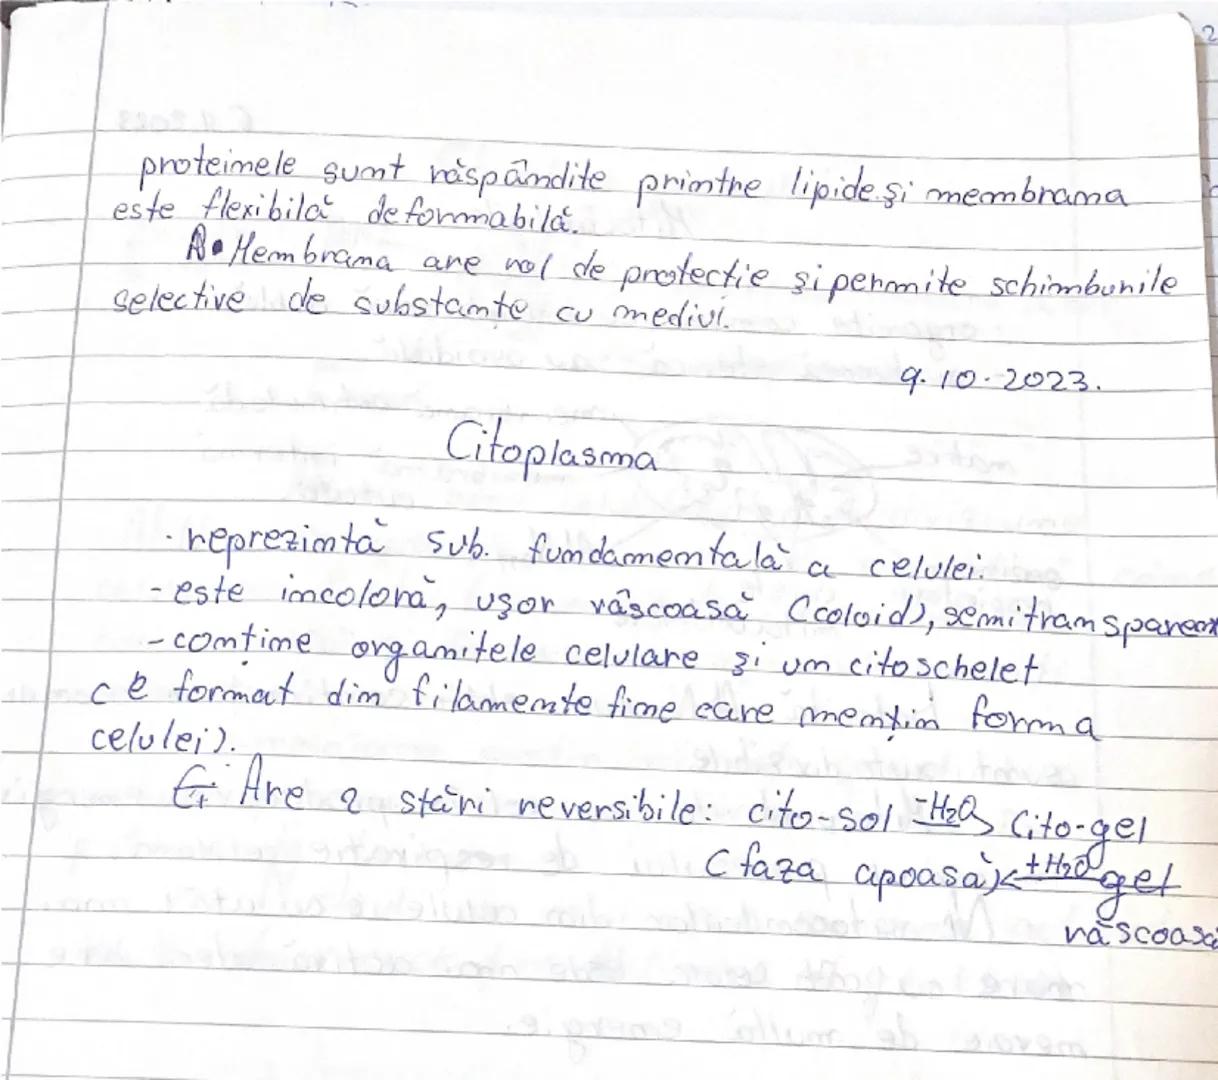 proteinele sunt răspândite printre lipide și membrana
este flexibilă deformabilă.
• Membrana are rol de protectie și permite schimburile
selective de substante cu mediul.
9.10.2023.
Citoplasma
· reprezintă sub. fundamentală a celulei.
- este incoloră, ușor vâscoasă (coloid), semitransparen
- conține organitele celulare și un citoschelet
( e format din filamente fine care mențin forma
celulei).
Are 2 stări reversibile: cito-sol -H₂O Cito-gel
(faza apoasă) +H₂O gel
văscoasă